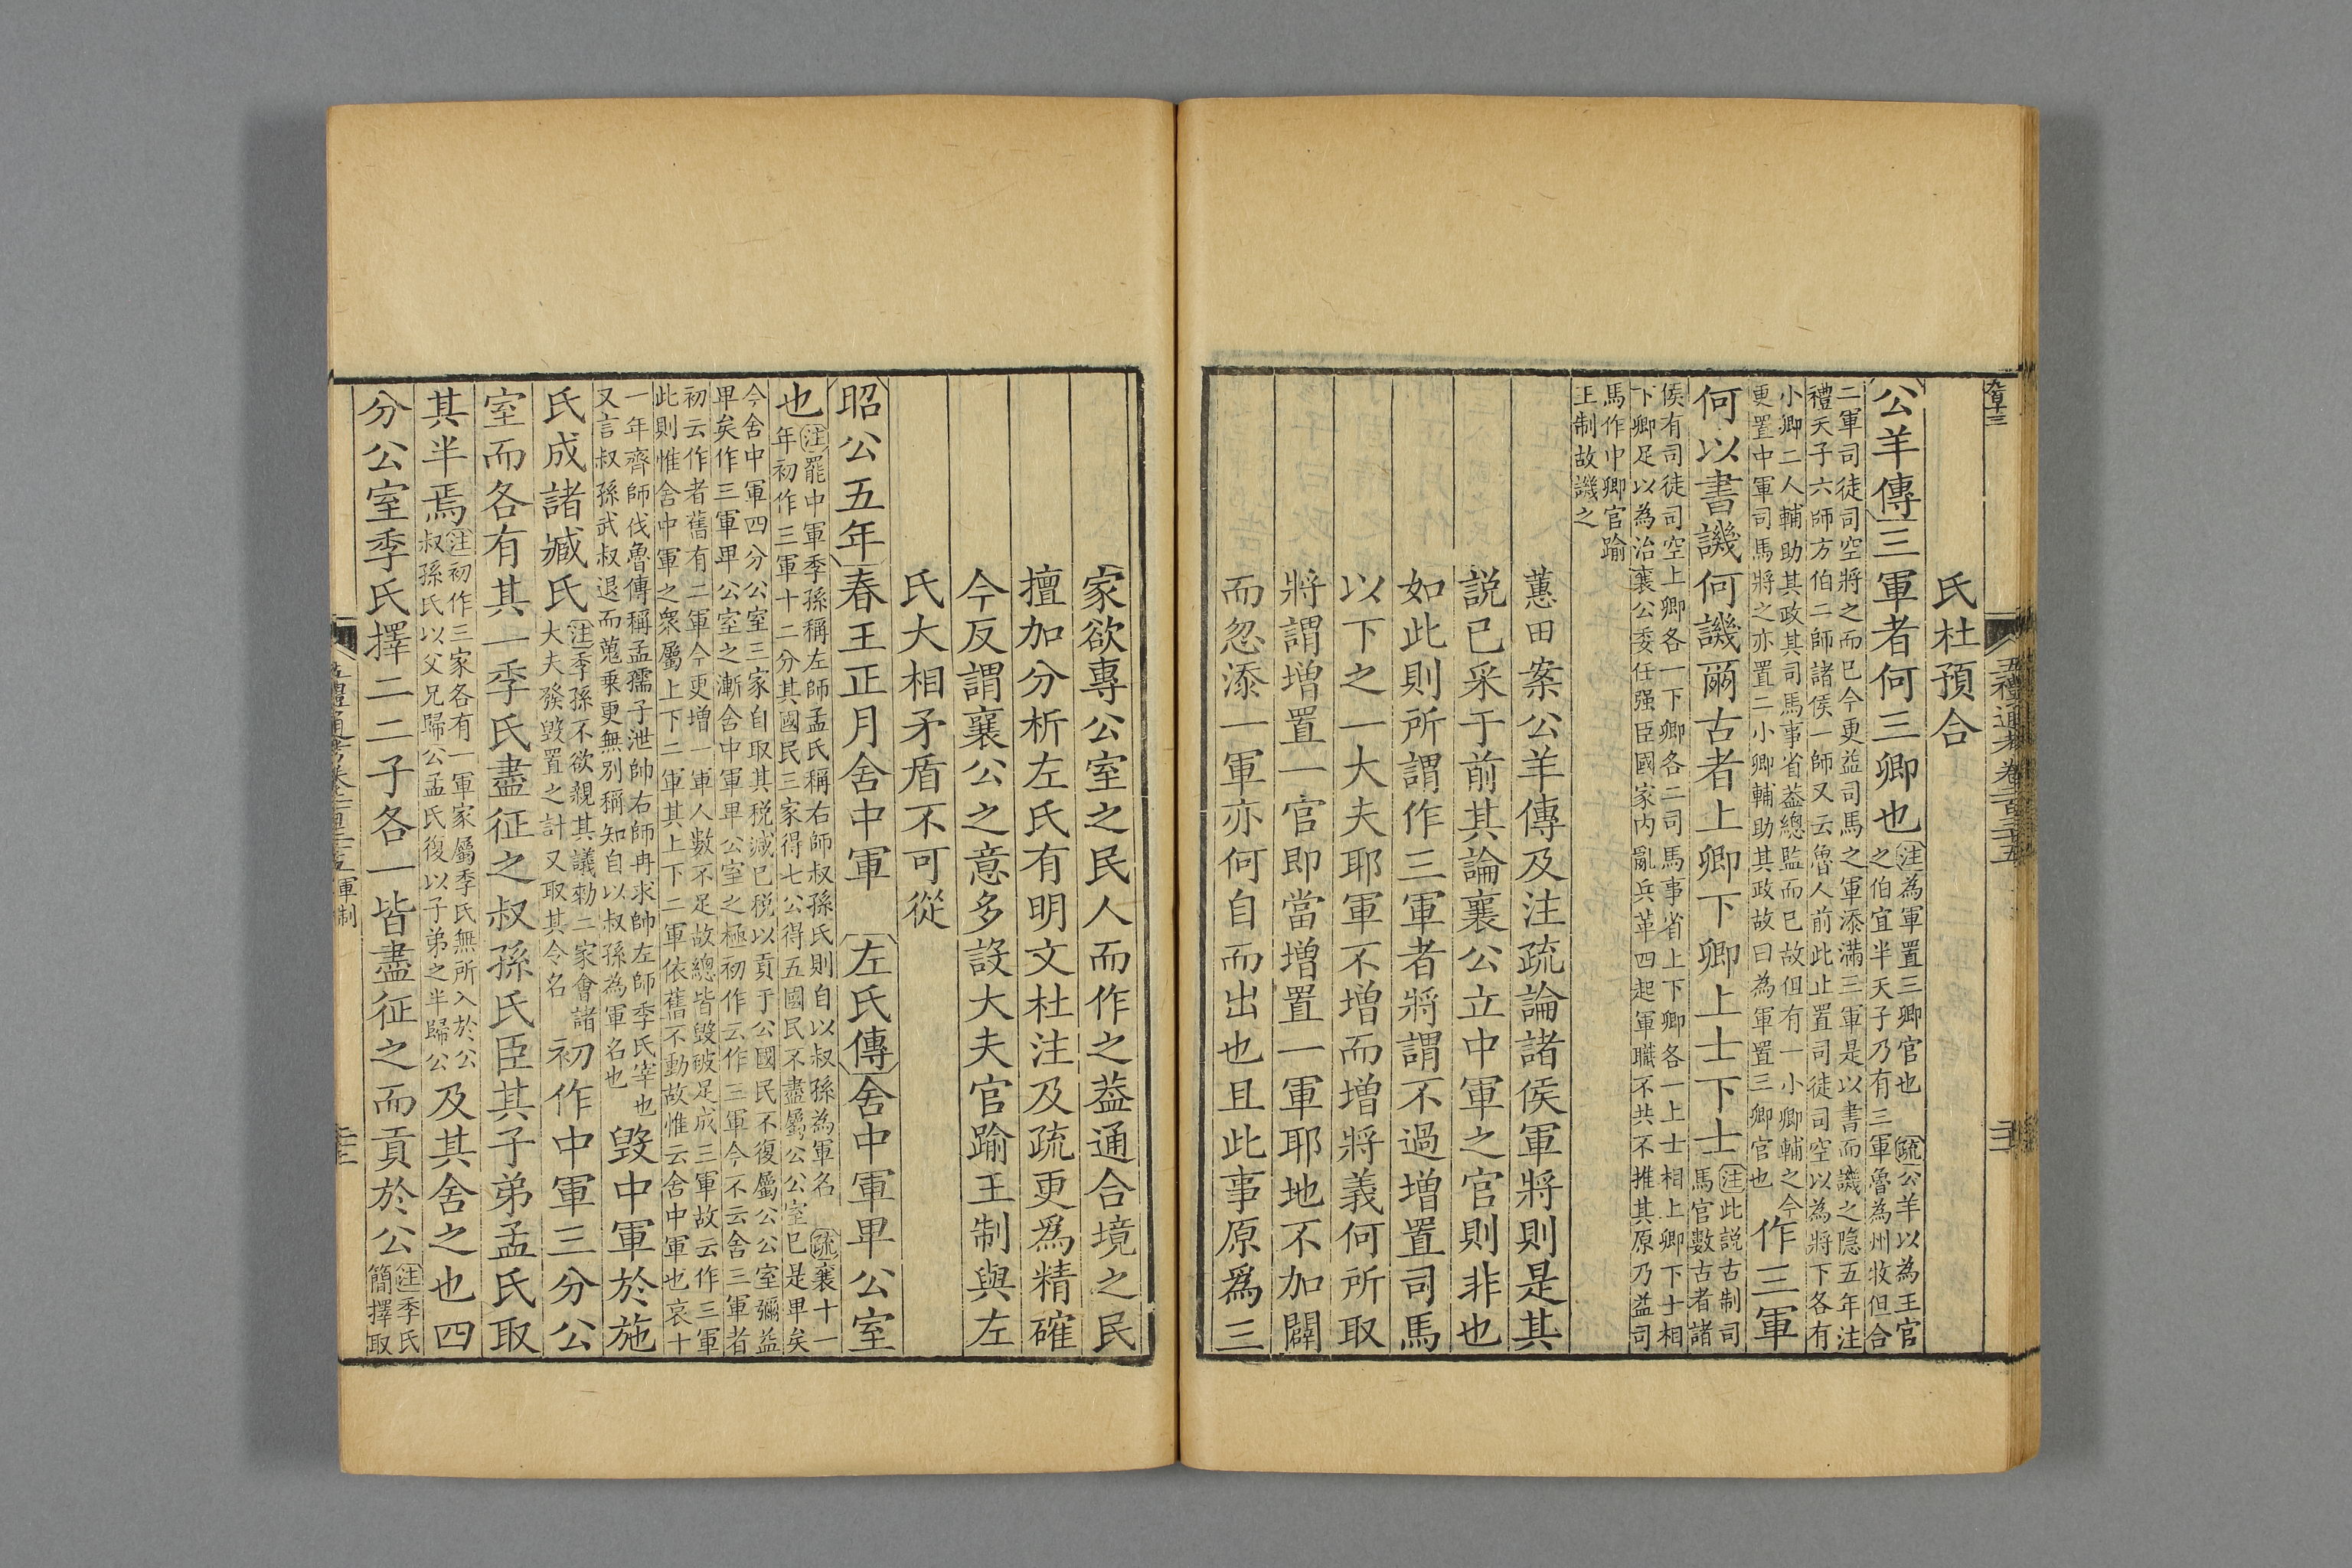 氏杜預合
公羊傳三軍者何三卿也注為軍置三卿官也 疏公羊以為王官
之伯宜半天子乃有三軍魯為州牧但合
二軍司徒司空將之而已今更益司馬之軍添滿三軍是以書而譏之隐五年注
禮天子六師方伯二師諸侯一師又云魯人前此止置司徒司空以為將下各有
小卿二人輔助其政其司馬事省葢總監而已故但有一小卿輔之今
更置中軍司馬將之亦置二小卿輔助其政故曰為軍置三卿官也
作三軍
何以書譏何譏爾古者上卿下卿上士下士注此説古制司
馬官數古者諸
侯有司徒司空上卿各一下卿各二司馬事省上下卿各一上士相上卿下士相
下卿足以為治襄公委任强臣國家内亂兵革四起軍職不共不推其原乃益司
馬作中卿官踰
王制故譏之
蕙田案公羊傳及注疏論諸侯軍將則是其
説已采于前其論襄公立中軍之官則非也
如此則所謂作三軍者將謂不過增置司馬
以下之一大夫耶軍不增而增將義何所取
將謂增置一官即當增置一軍耶地不加闢
而忽添一軍亦何自而出也且此事原爲三
家欲專公室之民人而作之葢通合境之民
擅加分析左氏有明文杜注及疏更爲精確
今反謂襄公之意多設大夫官踰王制與左
氏大相矛盾不可從
昭公五年春王正月舍中軍 左氏傳舍中軍卑公室
也注罷中軍季孫稱左師孟氏稱右師叔孫氏則自以叔孫為軍名 疏襄十一
年初作三軍十二分其國民三家得七公得五國民不盡屬公公室已是卑矣
今舍中軍四分公室三家自取其税減已税以貢于公國民不復屬公公室彌益
卑矣作三軍卑公室之漸舍中軍卑公室之極初作云作三軍今不云舍三軍者
初云作者舊有二軍今更增一軍人數不足故總皆毀破足成三軍故云作三軍
此則惟舍中軍之衆屬上下二軍其上下二軍依舊不動故惟云舍中軍也哀十
一年齊師伐魯傳稱孟孺子泄帥右師冉求帥左師季氏宰也
又言叔孫武叔退而蒐乗更無別稱知自以叔孫為軍名也
毀中軍於施
氏成諸臧氏注季孫不欲親其議勑二家會諸
大夫發毀置之計又取其令名
初作中軍三分公
室而各有其一季氏盡征之叔孫氏臣其子弟孟氏取
其半焉注初作三家各有一軍家屬季氏無所入於公
叔孫氏以父兄歸公孟氏復以子弟之半歸公
及其舍之也四
分公室季氏擇二二子各一皆盡征之而貢於公注季氏
簡擇取
五禮通考卷二百三十五軍制